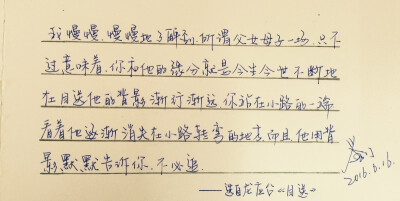 我慢慢、慢慢地了解到,所谓父女母子一场,只不
过意味着,你和他的缘分就是今生今世不断地
在目送他的背影渐行渐远.你站在小路的一端
看着他逐渐消失在小路转弯的地方,而且,他用背
影默默告诉你,不必追.
——选自龙应台《目送》
2016.6.16.